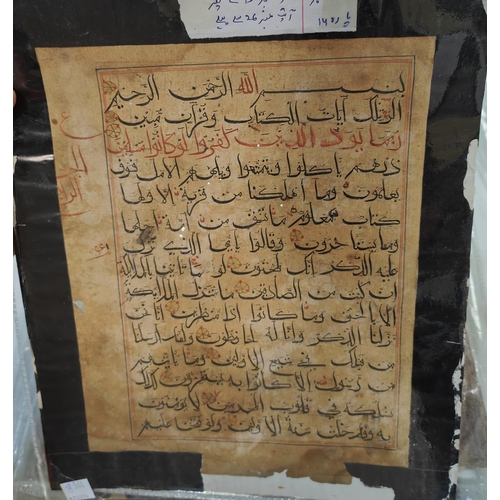 آیت نمبر 26 سے پہلے
پارہ 14
بسم الله الرحمن الرحيم
الر تلك آيات الكتاب وقرآن مبين
ربما يود الذين كفروا لو كانوا مسلمين
ذرهم ياكلوا ويتمتعوا ويلههم الامل فسوف
يعلمون وما اهلكنا من قرية الا ولها
كتاب معلوم ما تسبق من امة اجلها
وما يستاخرون وقالوا يايها الذي نزل
عليه الذكر انك لمجنون لو ما تاتينا بالملائكة
ان كنت من الصادقين ما ننزل الملائكة
الا بالحق وما كانوا اذا منظرين انا نحن
نزلنا الذكر وانا له لحافظون ولقد ارسلنا
من قبلك في شيع الاولين وما ياتيهم
من رسول الا كانوا به يستهزون كذلك
نسلكه في قلوب المجرمين لا يومنون
به وقد خلت سنة الاولين ولو فتحنا عليهم